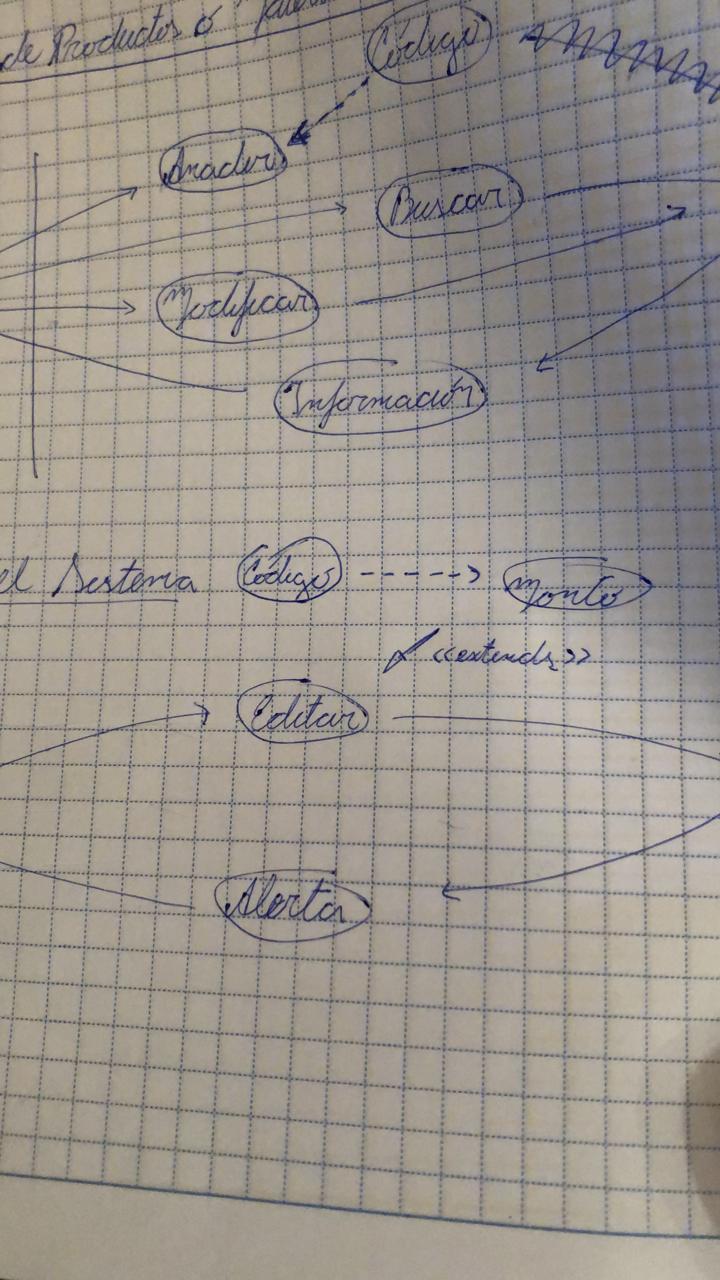 de Productos ó
Código
Añadir
Buscar
Modificar
Información
el Sistema Código Monto
<<extends>>
Editar
Alerta